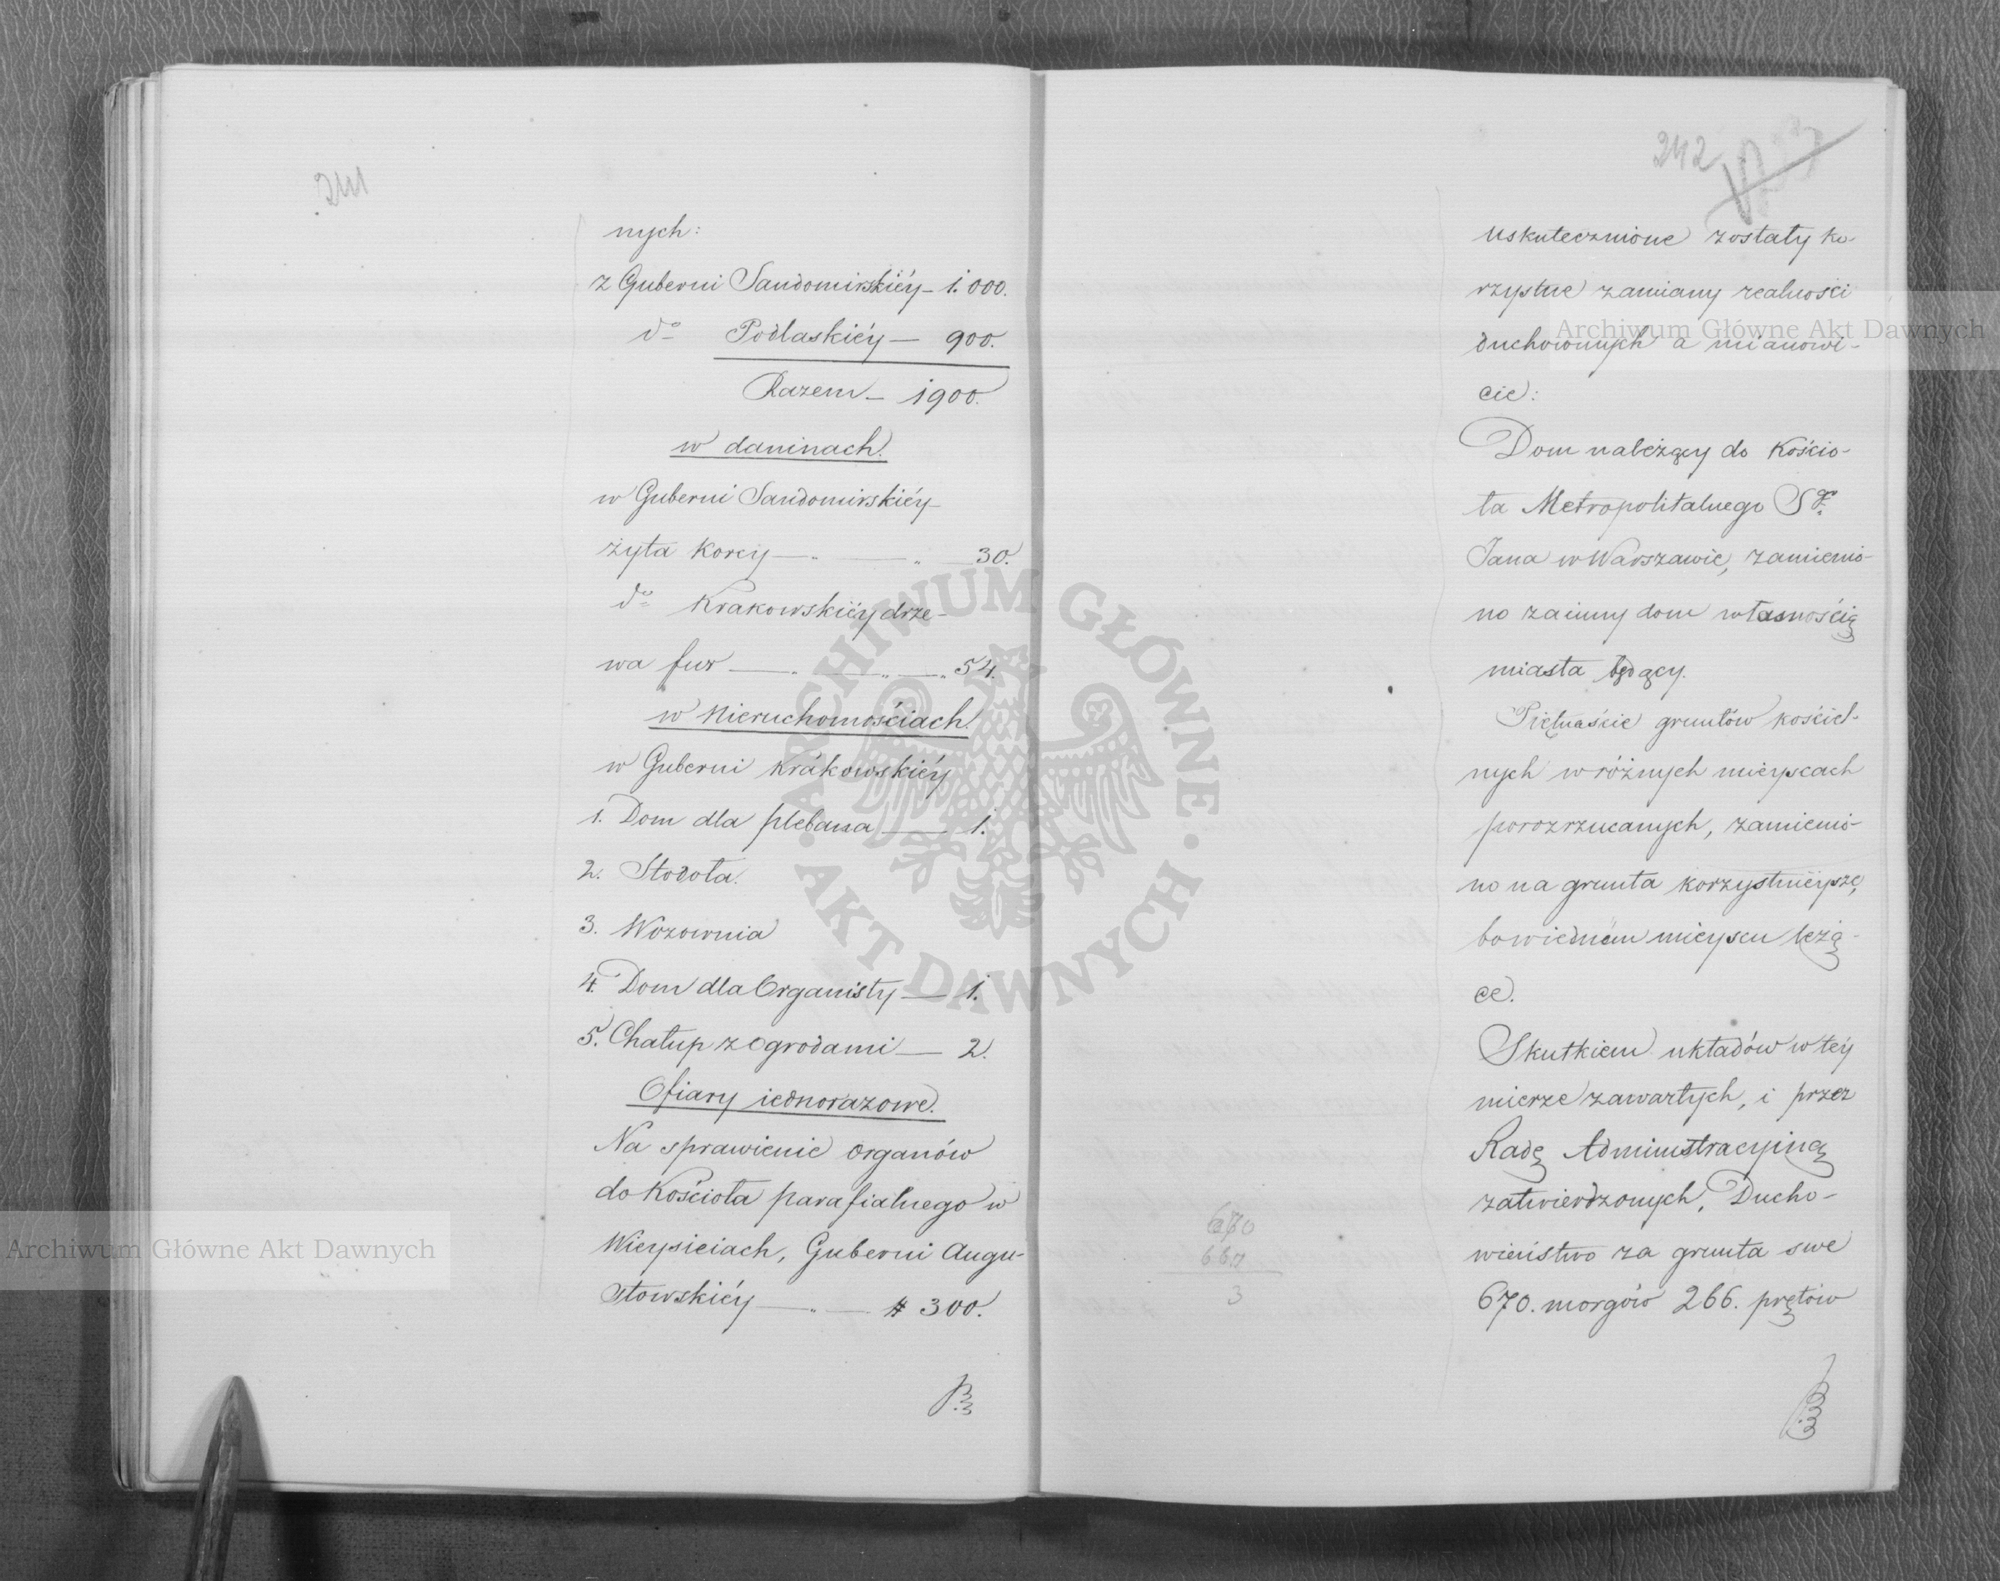 241
nych:
z Guberni Sandomirskiéy – 1.000.
do Podlaskiéy – 900.
Razem – 1900.
w daninach.
w Guberni Sandomirskiéy
żyta korcy – " – " – 30.
do Krakowskiéy drze-
wa fur – " – " – " 54.
w Nieruchomościach.
w Guberni Krakowskiéy
1. Dom dla plebana – 1.
2. Stodoła.
3. Wozownia
4. Dom dla Organisty – 1.
5. Chałup z ogrodami – 2.
Ofiary iednorazowe.
Na sprawienie organów
do Kościoła parafialnego w
Wieysieiach, Guberni Augu-
stowskiéy – " – # 300.
242
uskutecznione zostały ko-
rzystne zamiany realności
duchownych a mianowi-
cie:
Dom należący do Kościo-
ła Metropolitalnego Sgo
Jana w Warszawie, zamienio-
no za inny dom własnością
miasta będący.
Piętnaście gruntów kościel-
nych w różnych mieyscach
porozrzucanych, zamienio-
no na grunta korzystniéysze,
bo w iedném mieyscu leżą-
ce.
Skutkiem układów w téy
mierze zawartych, i przez
Radę Administracyiną
zatwierdzonych, Ducho-
wieństwo za grunta swe
670. morgów 266. prętów
670
667
3
Archiwum Główne Akt Dawnych
Archiwum Główne Akt Dawnych
ARCHIWUM GŁÓWNE · AKT DAWNYCH ·